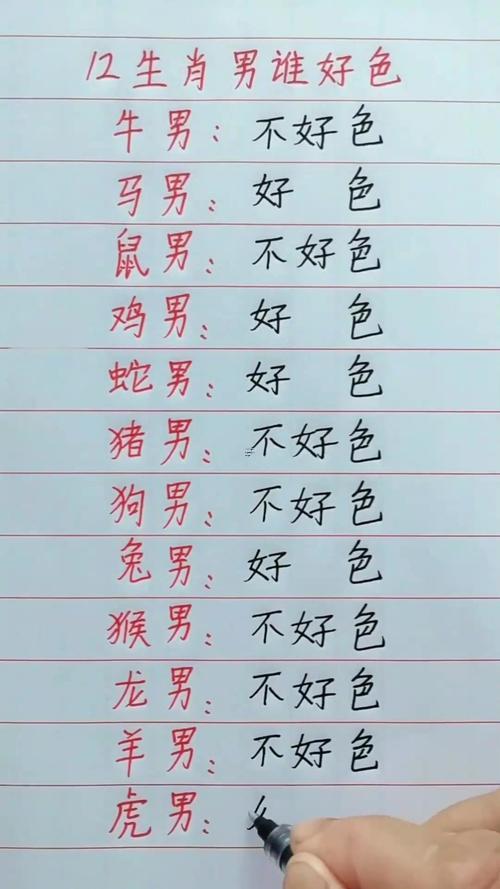 12生肖男谁好色
牛男：不好色
马男：好 色
鼠男：不好色
鸡男：好 色
蛇男：好 色
猪男：不好色
狗男：不好色
兔男：好 色
猴男：不好色
龙男：不好色
羊男：不好色
虎男：